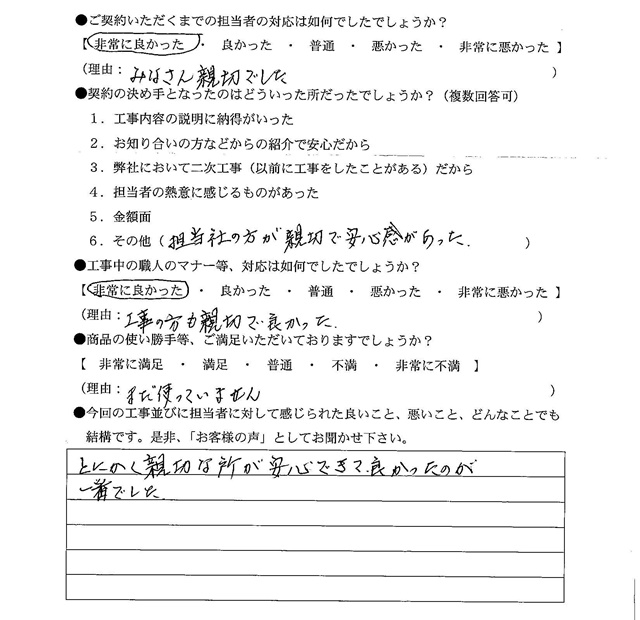 ●ご契約いただくまでの担当者の対応は如何でしたでしょうか？
【 非常に良かった ・ 良かった ・ 普通 ・ 悪かった ・ 非常に悪かった 】
（理由：みなさん親切でした ）
●契約の決め手となったのはどういった所だったでしょうか？（複数回答可）
１．工事内容の説明に納得がいった
２．お知り合いの方などからの紹介で安心だから
３．弊社において二次工事（以前に工事をしたことがある）だから
４．担当者の熱意に感じるものがあった
５．金額面
６．その他（担当社の方が親切で安心感があった. ）
●工事中の職人のマナー等、対応は如何でしたでしょうか？
【 非常に良かった ・ 良かった ・ 普通 ・ 悪かった ・ 非常に悪かった 】
（理由：工事の方も親切で良かった. ）
●商品の使い勝手等、ご満足いただいておりますでしょうか？
【 非常に満足 ・ 満足 ・ 普通 ・ 不満 ・ 非常に不満 】
（理由：まだ使っていません ）
●今回の工事並びに担当者に対して感じられた良いこと、悪いこと、どんなことでも
結構です。是非、「お客様の声」としてお聞かせ下さい。
とにかく親切な所が安心できて良かったのが
一番でした.